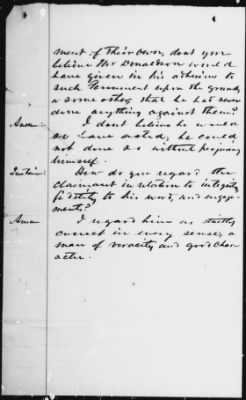 ment of Their own, dont you
believe Mr Donaldson would
have given in his adhesion to
such Government upon the ground
or some other that he had never
done anything against them?
Answer: I dont believe he would
so have acted, he could
not done so without perjuring
himself.
Question: How do you regard the
Claimant in relation to integrity
fidelity to his word, and engage-
ments?
Answer I regard him as strictly
correct in every sense, a
man of veracity and good char-
acter.